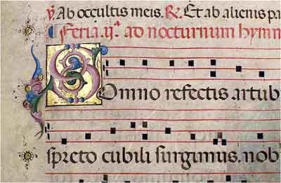 ℣ Ab occultis meis. ℟. Et ab alienis pa
Feria. ij.ª ad nocturnum hymn
Somno refectis artub
spreto cubili surgimus. nob